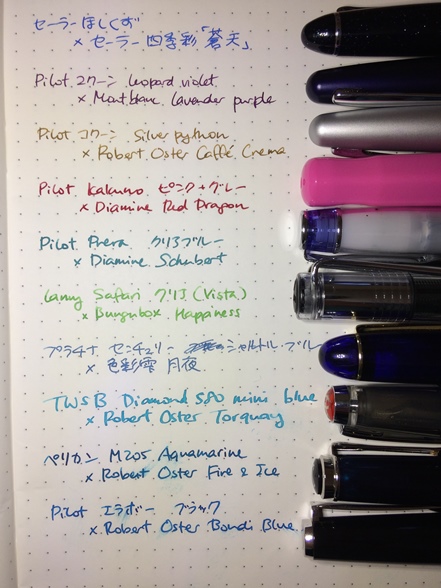 セーラー ほしくず
× セーラー 四季彩「蒼天」
Pilot コクーン leopard violet
× Montblanc lavender purple
Pilot コクーン Silver python
× Robert Oster Caffé Crema
Pilot Kakuno ピンク+グレー
× Diamine Red Dragon
Pilot Prera クリアブルー
× Diamine Schubert
Lamy Safari クリア (Vista)
× Bungubox Happiness
プラチナ センチュリー シャルトル・ブルー
× 色彩雫 月夜
TWSB Diamond 580 mini blue
× Robert Oster Torquay
ペリカン M205 Aquamarine
× Robert Oster Fire & Ice
Pilot エラボー ブラック
× Robert Oster Bondi Blue